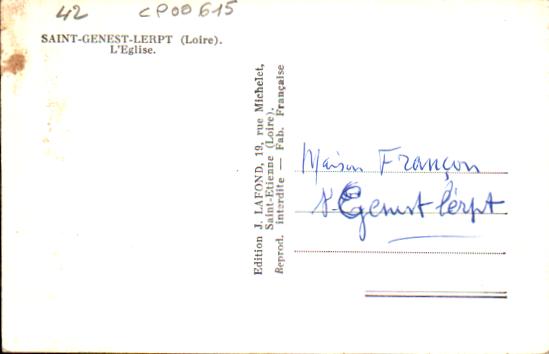 42 CP00615
SAINT-GENEST-LERPT (Loire).
L'Eglise.
Edition J. LAFOND, 19, rue Michelet,
Saint-Etienne (Loire).
Reprod. interdite — Fab. Française
Maison Françon
St-Genest Lérpt